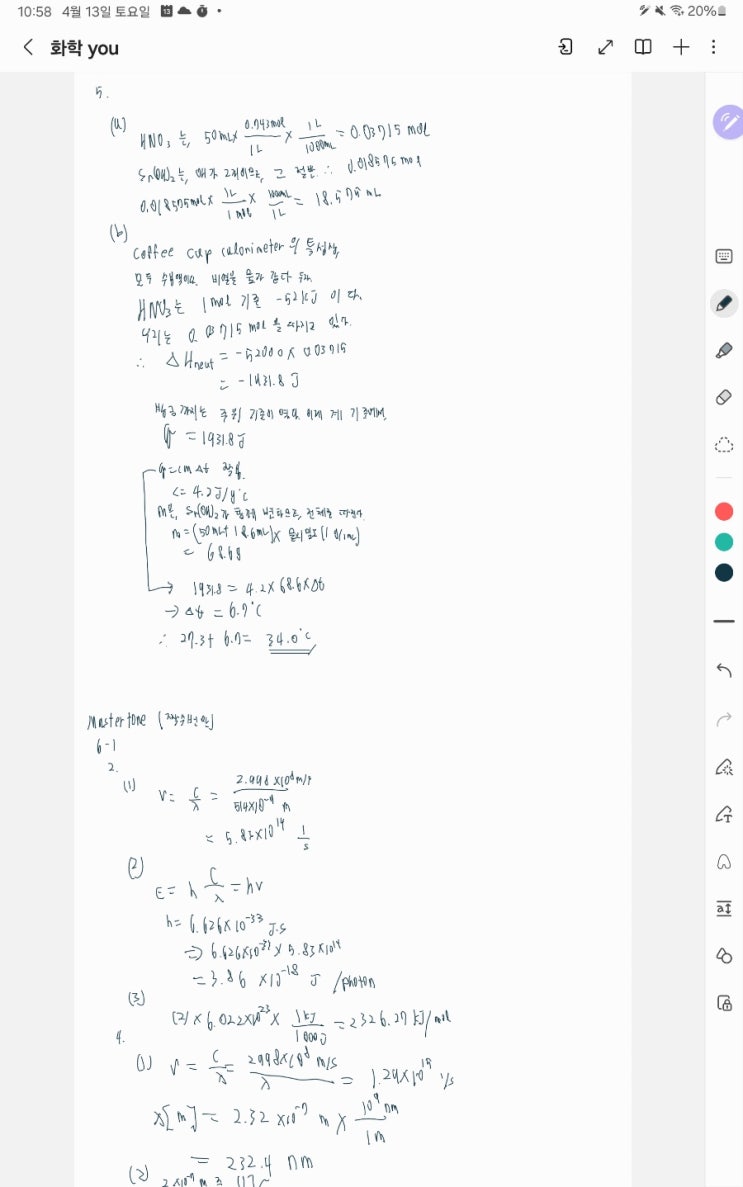 10:58 4월 13일 토요일
20%
화학 you
5.
(a)
HNO₃ 는, 50mL× 0.743mol/1L × 1L/1000mL = 0.03715 mol
Sr(OH)₂는, 그 절반 ∴ 0.018575mol
0.018575mol× 1L/1mol × 1000mL/1L = 18.575 mL
(b)
Coffee cup calorimeter 의 특성상,
모두 수용액이고, 비열은 물과 같다
HNO₃는 1mol 기준 -52kJ 이다.
우리는 0.03715 mol 을 가지고 있다.
∴ ΔHneut = -52000× 0.03715
= -1931.8 J
q = 1931.8J
q=cmΔt
c= 4.2J/g°C
m = (50mL+ 18.6mL)× (1g/1mL)
= 68.6g
→ 1931.8 = 4.2×68.6×Δt
→ Δt = 6.7°C
∴ 27.3+ 6.7= 34.0°C
Mastertone
6-1
2.
(1) ν= c/λ = 2.998 ×10⁸m/s / 514×10⁻⁹ m
= 5.83×10¹⁴ 1/s
(2)
E= h c/λ =hν
h= 6.626×10⁻³³ J·s
⇒ 6.626×10⁻³³ × 5.83×10¹⁴
=3.86 ×10⁻¹⁸ J /photon
(3)
(2)×6.022×10²³× 1kJ/1000J =2326.27 kJ/mol
4.
(1) ν = c/λ = 2.998×10⁸ m/s / λ = 1.29×10¹⁵ 1/s
λ[m] = 2.32 ×10⁻⁷ m × 10⁹ nm/1m
= 232.4 nm
(2)